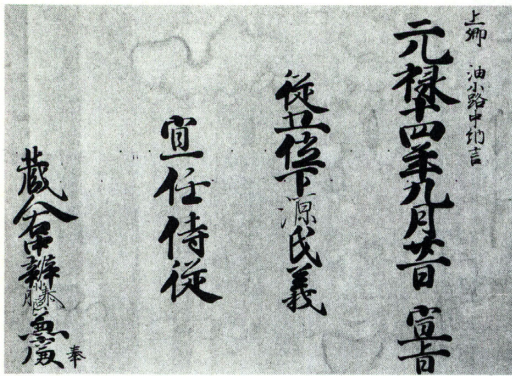 上卿 油小路中納言
元禄十四年九月廿一日 宣旨
従五位下源氏義
宜任侍従
蔵人右中辨藤原兼廉 奉